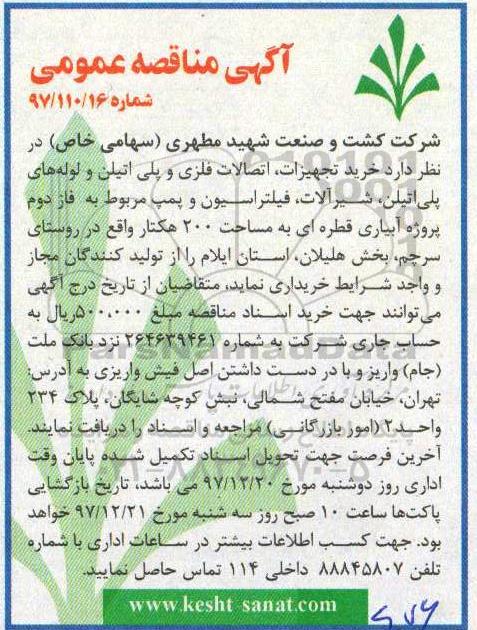 آگهی مناقصه عمومی
شماره ۹۷/۱۱۰/۱۶
شرکت کشت و صنعت شهید مطهری (سهامی خاص) در
نظر دارد خرید تجهیزات، اتصالات فلزی و پلی اتیلن و لوله‌های
پلی‌اتیلن، شیرآلات، فیلتراسیون و پمپ مربوط به فاز دوم
پروژه آبیاری قطره ای به مساحت ۲۰۰ هکتار واقع در روستای
سرچم، بخش هلیلان، استان ایلام را از تولید کنندگان مجاز
و واجد شرایط خریداری نماید، متقاضیان از تاریخ درج آگهی
می‌توانند جهت خرید اسناد مناقصه مبلغ ۵۰۰،۰۰۰ریال به
حساب جاری شرکت به شماره ۲۶۴۶۳۹۴۶۱ نزد بانک ملت
(جام) واریز و با در دست داشتن اصل فیش واریزی به آدرس:
تهران، خیابان مفتح شمالی، نبش کوچه شایگان، پلاک ۲۳۴
واحد۲ (امور بازرگانی) مراجعه و اسناد را دریافت نمایند.
آخرین فرصت جهت تحویل اسناد تکمیل شده پایان وقت
اداری روز دوشنبه مورخ ۹۷/۱۲/۲۰ می باشد، تاریخ بازگشایی
پاکت‌ها ساعت ۱۰ صبح روز سه شنبه مورخ ۹۷/۱۲/۲۱ خواهد
بود. جهت کسب اطلاعات بیشتر در ساعات اداری با شماره
تلفن ۸۸۸۴۵۸۰۷ داخلی ۱۱۴ تماس حاصل نمایید.
www.kesht-sanat.com
ParsNamadData